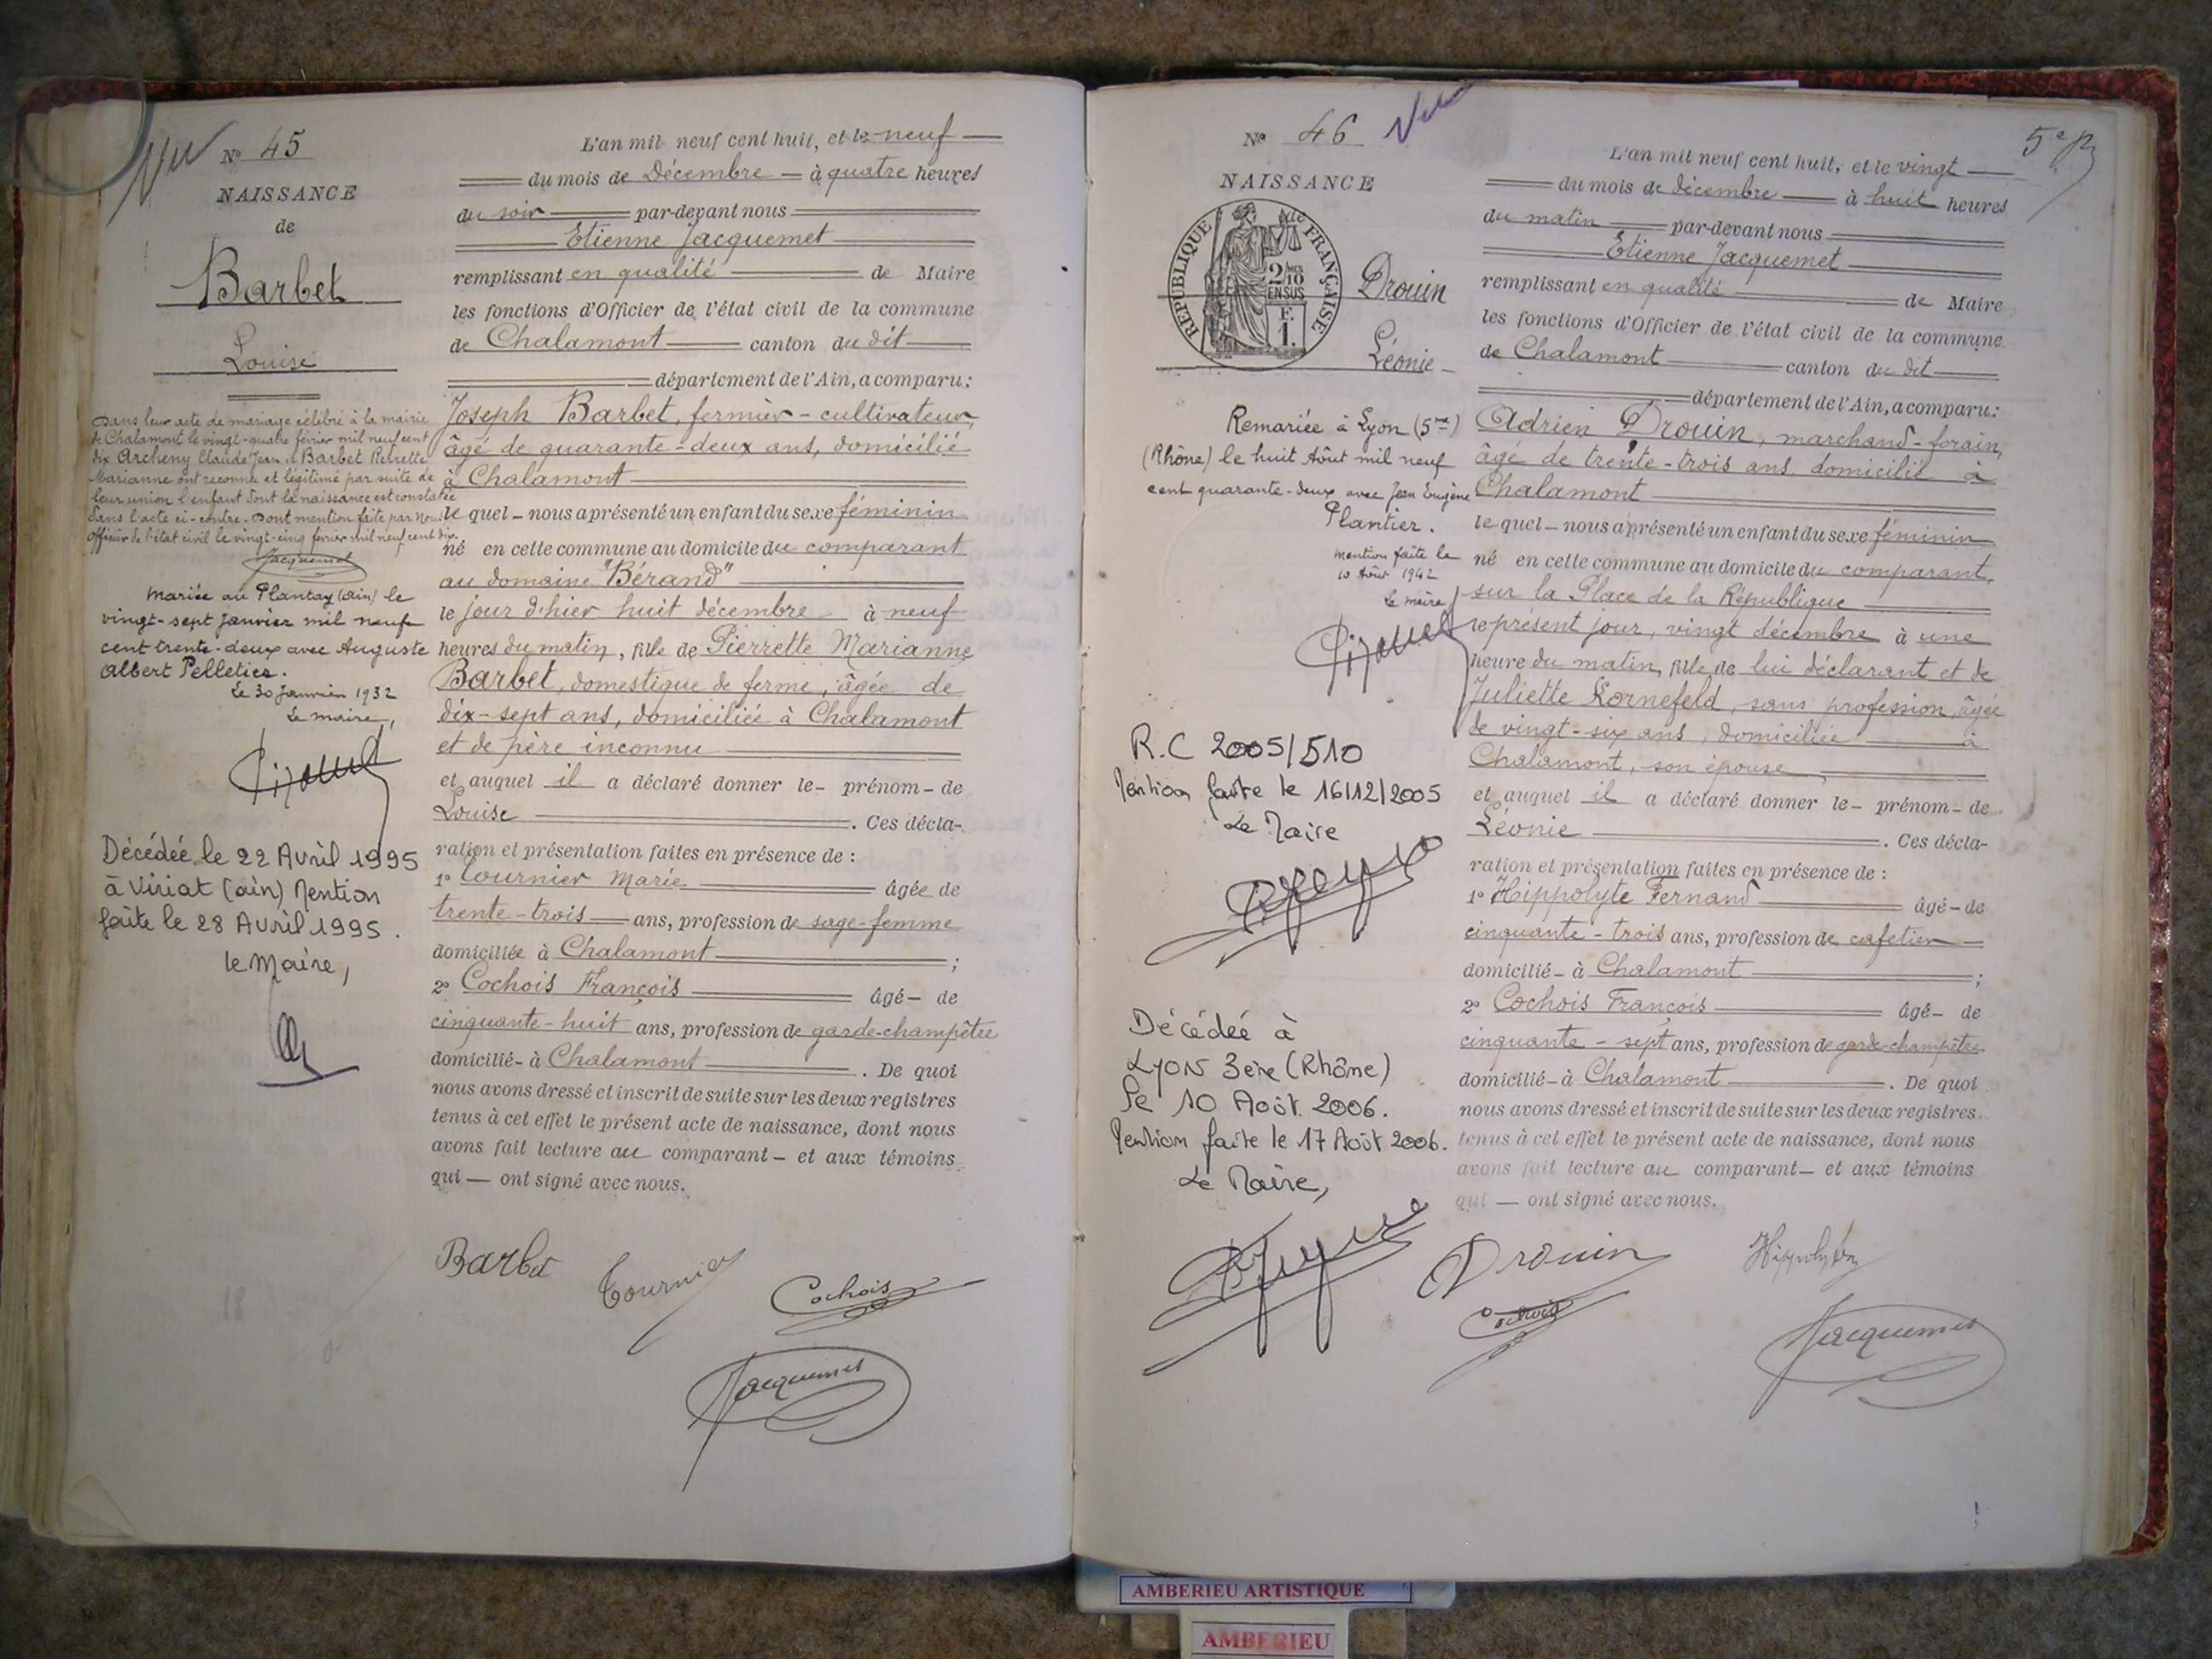 Vu
N° 45
NAISSANCE
de
Barbet
Louise
Dans leur acte de mariage célébré à la mairie
de Chalamont le vingt-quatre février mil neuf cent
dix Archeny Claude Jean et Barbet Pierrette
Marianne ont reconnu et légitimé par suite de
leur union l'enfant dont la naissance est constatée
dans l'acte ci-contre. Dont mention faite par nous
officier de l'état civil le vingt-cinq février mil neuf cent dix.
Jacquemet
Mariée au Plantay (Ain) le
vingt-sept Janvier mil neuf
cent trente-deux avec Auguste
Albert Pelletier.
Le 30 Janvier 1932
Le maire,
Décédée le 22 Avril 1995
à Viriat (ain) Mention
faite le 28 Avril 1995.
le Maire,
L'an mil neuf cent huit, et le neuf
du mois de Décembre à quatre heures
du soir par-devant nous
Etienne Jacquemet
remplissant en qualité de Maire
les fonctions d'Officier de l'état civil de la commune
de Chalamont canton du dit
département de l'Ain, a comparu:
Joseph Barbet, fermier-cultivateur,
âgé de quarante-deux ans, domicilié
à Chalamont
le quel nous a présenté un enfant du sexe féminin
né en cette commune au domicile du comparant
au domaine "Bérand"
le jour d'hier huit décembre à neuf
heures du matin, fille de Pierrette Marianne
Barbet, domestique de ferme, âgée de
dix-sept ans, domiciliée à Chalamont
et de père inconnu
et auquel il a déclaré donner le prénom de
Louise. Ces décla-
ration et présentation faites en présence de :
1° Tournier Marie âgée de
trente-trois ans, profession de sage-femme
domiciliée à Chalamont ;
2° Cochois François âgé de
cinquante-huit ans, profession de garde-champêtre
domicilié à Chalamont. De quoi
nous avons dressé et inscrit de suite sur les deux registres
tenus à cet effet le présent acte de naissance, dont nous
avons fait lecture au comparant et aux témoins
qui ont signé avec nous.
Barbet Tournier Cochois
Jacquemet
N° 46 Vu
5e
NAISSANCE
de
RÉPUBLIQUE FRANÇAISE
2/10
EN SUS
F.
1.
Drouin
Léonie
Remariée à Lyon (5me)
(Rhône) le huit Août mil neuf
cent quarante-deux avec Jean Eugène
Plantier.
mention faite le
10 Août 1942
Le maire
R.C 2005/510
Mention faite le 16/12/2005
Le Maire
Décédée à
Lyon 3ère (Rhône)
le 10 Août 2006.
Mention faite le 17 Août 2006.
Le Maire,
L'an mil neuf cent huit, et le vingt
du mois de décembre à huit heures
du matin par-devant nous
Etienne Jacquemet
remplissant en qualité de Maire
les fonctions d'Officier de l'état civil de la commune
de Chalamont canton du dit
département de l'Ain, a comparu:
Adrien Drouin, marchand-forain,
âgé de trente-trois ans domicilié à
Chalamont
le quel nous a présenté un enfant du sexe féminin
né en cette commune au domicile du comparant,
sur la Place de la République
le présent jour, vingt décembre à une
heure du matin, fille de lui déclarant et de
Juliette Kornefeld, sans profession, âgée
de vingt-six ans, domiciliée à
Chalamont, son épouse,
et auquel il a déclaré donner le prénom de
Léonie. Ces décla-
ration et présentation faites en présence de :
1° Hippolyte Fernand âgé de
cinquante-trois ans, profession de cafetier
domicilié à Chalamont ;
2° Cochois François âgé de
cinquante-sept ans, profession de garde-champêtre
domicilié à Chalamont. De quoi
nous avons dressé et inscrit de suite sur les deux registres
tenus à cet effet le présent acte de naissance, dont nous
avons fait lecture au comparant et aux témoins
qui ont signé avec nous.
Drouin Hippolyte
Cochois
Jacquemet
AMBERIEU ARTISTIQUE
AMBERIEU